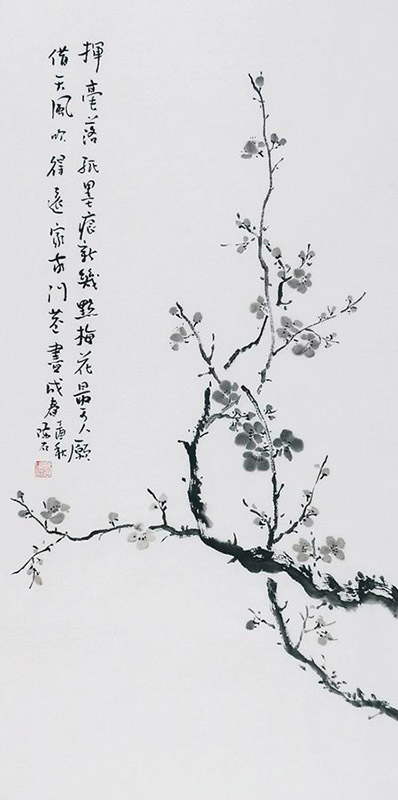 揮毫落紙墨痕新幾點梅花最可人願
借天風吹得遠家家门巷盡成春
酉秋